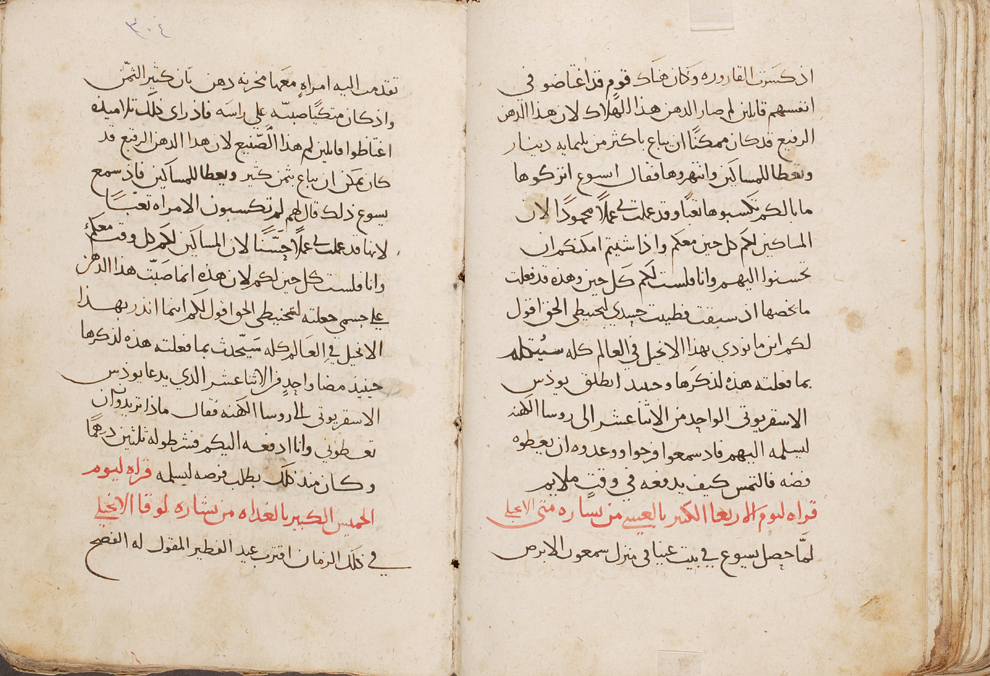 اذ كسرت القاروره وكان هناك قوم قد اغتاضو في
انفسهم قايلين لم صار الدهن هذا الهلاك لان هذا الدهن
الرفيع قد كان ممكنًا ان يباع باكثر من ثلثمايه دينار
ويعطا للمساكين وانتهروها فقال ايسوع اتركوها
ما بالكم تكسبوها تعبًا وقد عملت بي عملًا محمودًا لان
المساكين لكم كل حين معكم واذا شيتم امكنكم ان
تحسنوا اليهم وانا فلست لكم كل حين وهذه قد فعلت
ما يخصها اذ سبقت فطيبت جسدي لتحنيطي الحق اقول
لكم اين ما نودي بهذا الانجيل في العالم كله سيتكلم
بما فعلته هذه لذكرها وحينيد انطلق يوذس
الاسقريوتي الواحد من الاثنا عشر الى روسا الكهنه
ليسلمه اليهم فاذ سمعوا فرحوا ووعدوه ان يعطوه
فضه فالتمس كيف يدفعه في وقتٍ ملايم
قراه ليوم الاربعا الكبير بالعشي من بشاره متى الانجيلي
لمّا حصل يسوع في بيت عنيا في منزل سمعون الابرص
٣٠٤
تقدمت اليه امراه معها دهن بان كثير الثمن
واذ كان متكيًا صبته على راسه فاذ راى ذلك تلاميذه
اغتاطوا قايلين لم هذا الصنيع لان هذا الدهن الرفيع قد
كان يمكن ان يباع بثمن كثير ويعطا للمساكين فاذ سمع
يسوع ذلك قال لهم لم تكسبون الامراه تعبًا
لانها قد عملت بي عملًا حسنًا لان المساكين لكم كل وقت معكم
وانا فلست كل حين لكم لان هذه انما صبّت هذا الدهن
على جسمي جعلته لتحنيطي الحق اقول لكم اينما انذر بهذا
الانجيل في العالم كله سيتحدث بما فعلته هذه لذكرها
حينيد مضا واحدٍ من الاثنا عشر الذي يدعا يوذس
الاسقريوتي الى روسا الكهنه فقال ماذا تريدون ان
تعطوني وانا ادفعه اليكم فشرطو له ثلثين درهمًا
وكان منذ ذلك يطلب فرصه ليسلمه قراه ليوم
الخميس الكبير بالغداه من بشاره لوقا الانجيلي
في ذلك الزمان اقترب عيد الفطير المقول له الفصح